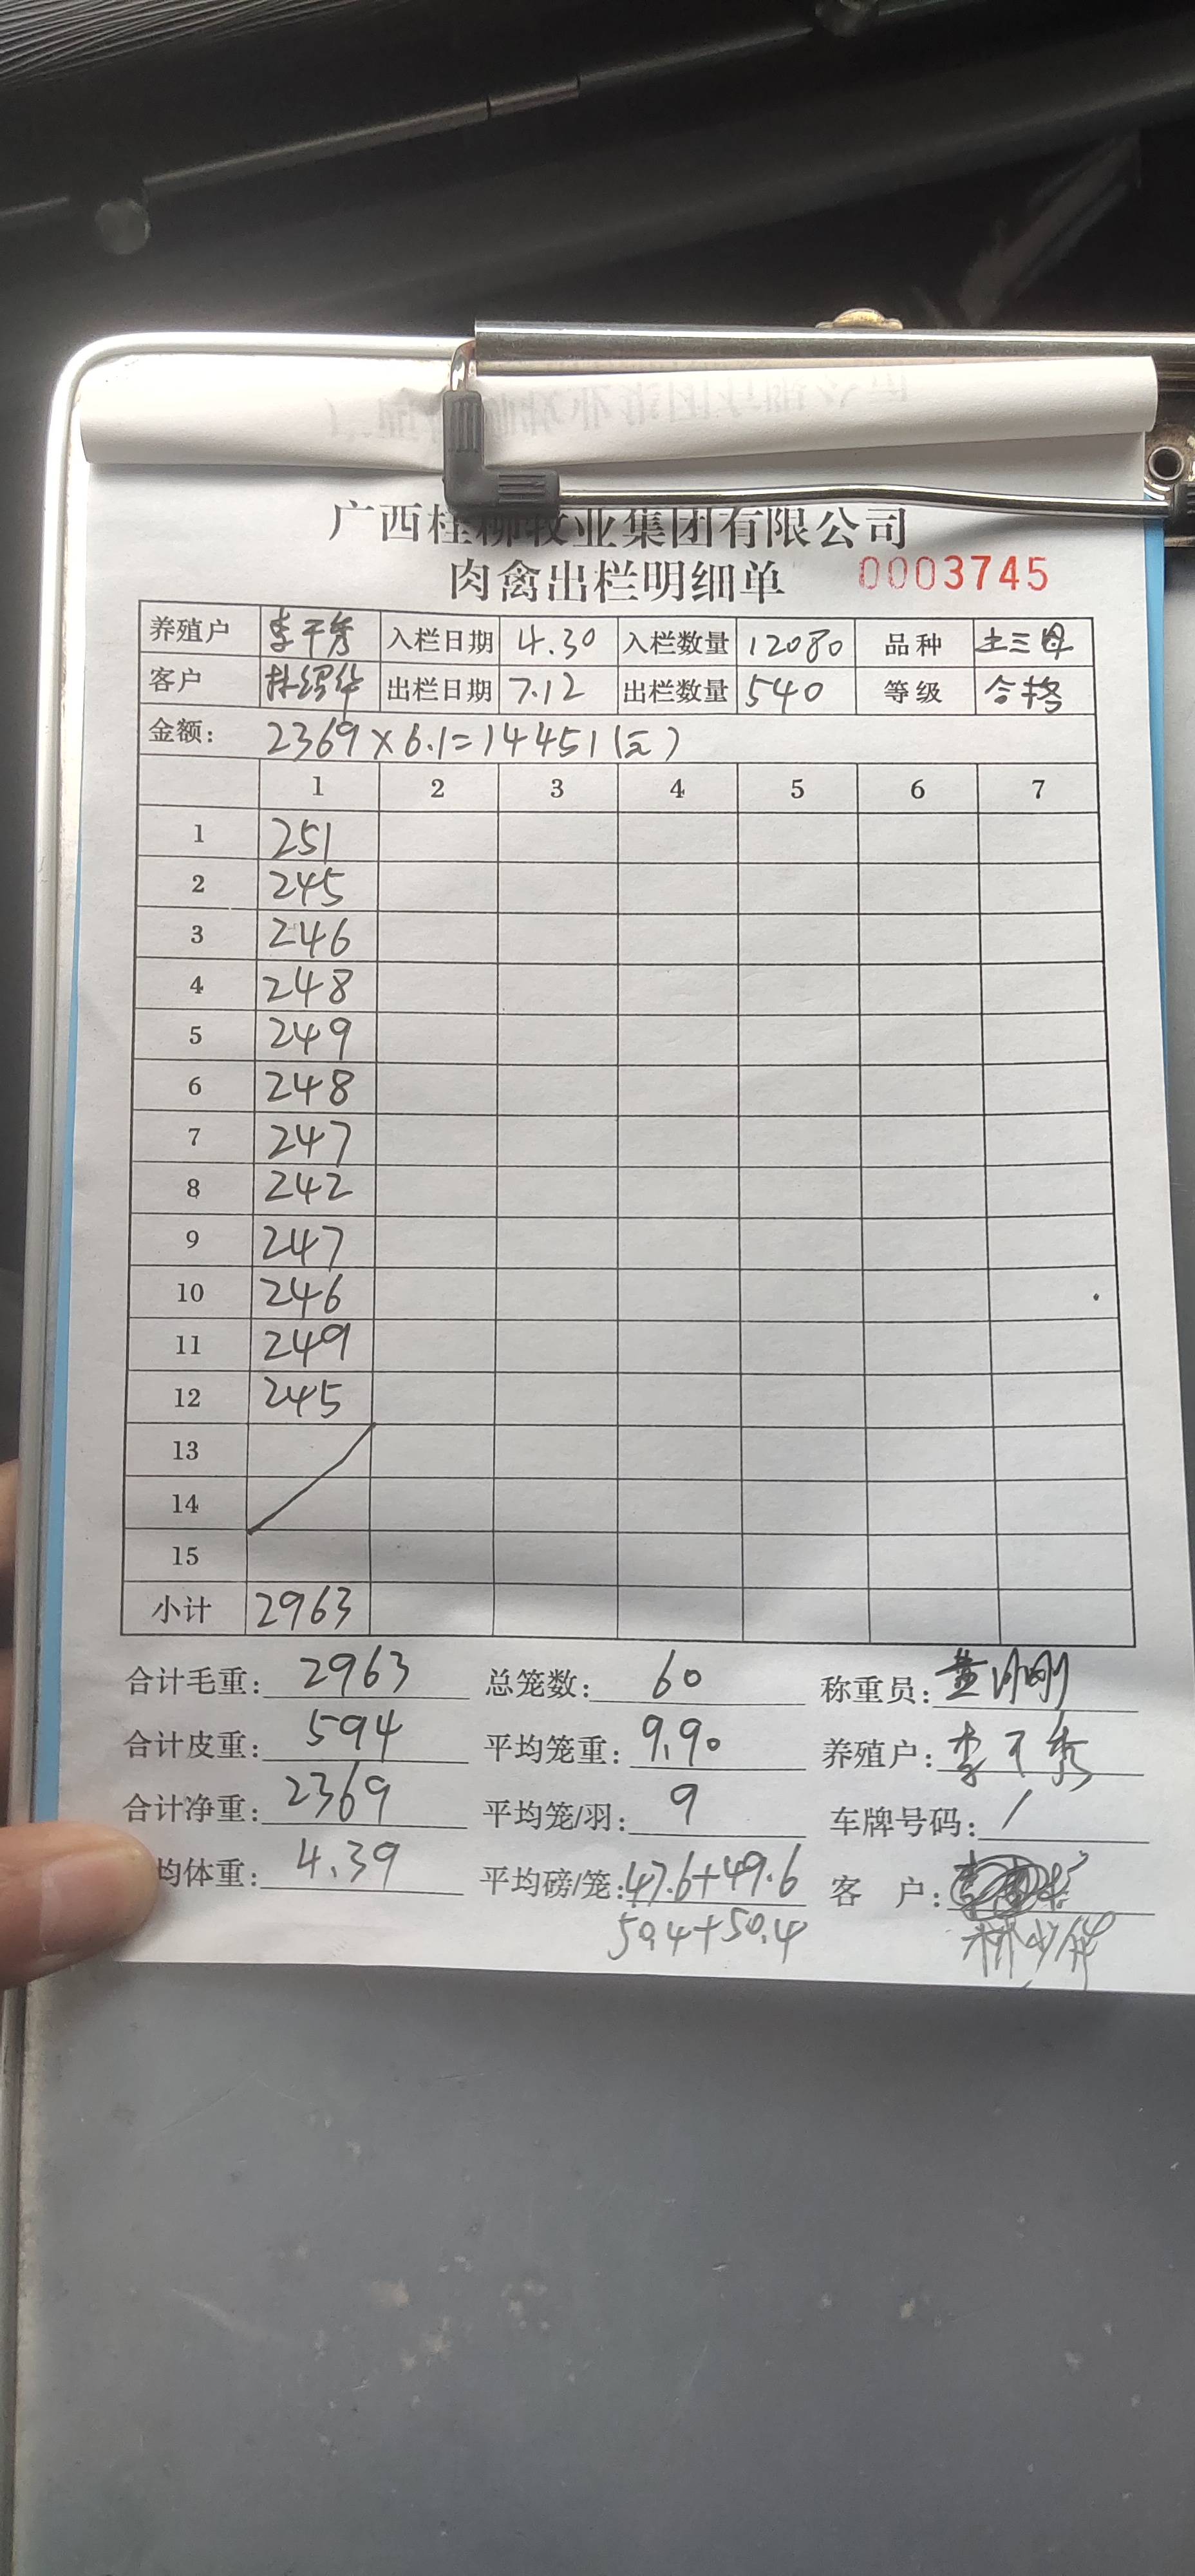 广西桂柳牧业集团有限公司
肉禽出栏明细单 0003745
养殖户 李干秀 入栏日期 4.30 入栏数量 12080 品种 土三母
客户 林绍华 出栏日期 7.12 出栏数量 540 等级 合格
金额: 2369×6.1=14451(元)
1 2 3 4 5 6 7
1 251
2 245
3 246
4 248
5 249
6 248
7 247
8 242
9 247
10 246
11 249
12 245
13
14
15
小计 2963
合计毛重: 2963 总笼数: 60 称重员: 黄
合计皮重: 594 平均笼重: 9.90 养殖户: 李干秀
合计净重: 2369 平均笼/羽: 9 车牌号码: /
均体重: 4.39 平均磅/笼: 47.6+49.6 客 户:
50.4+50.4